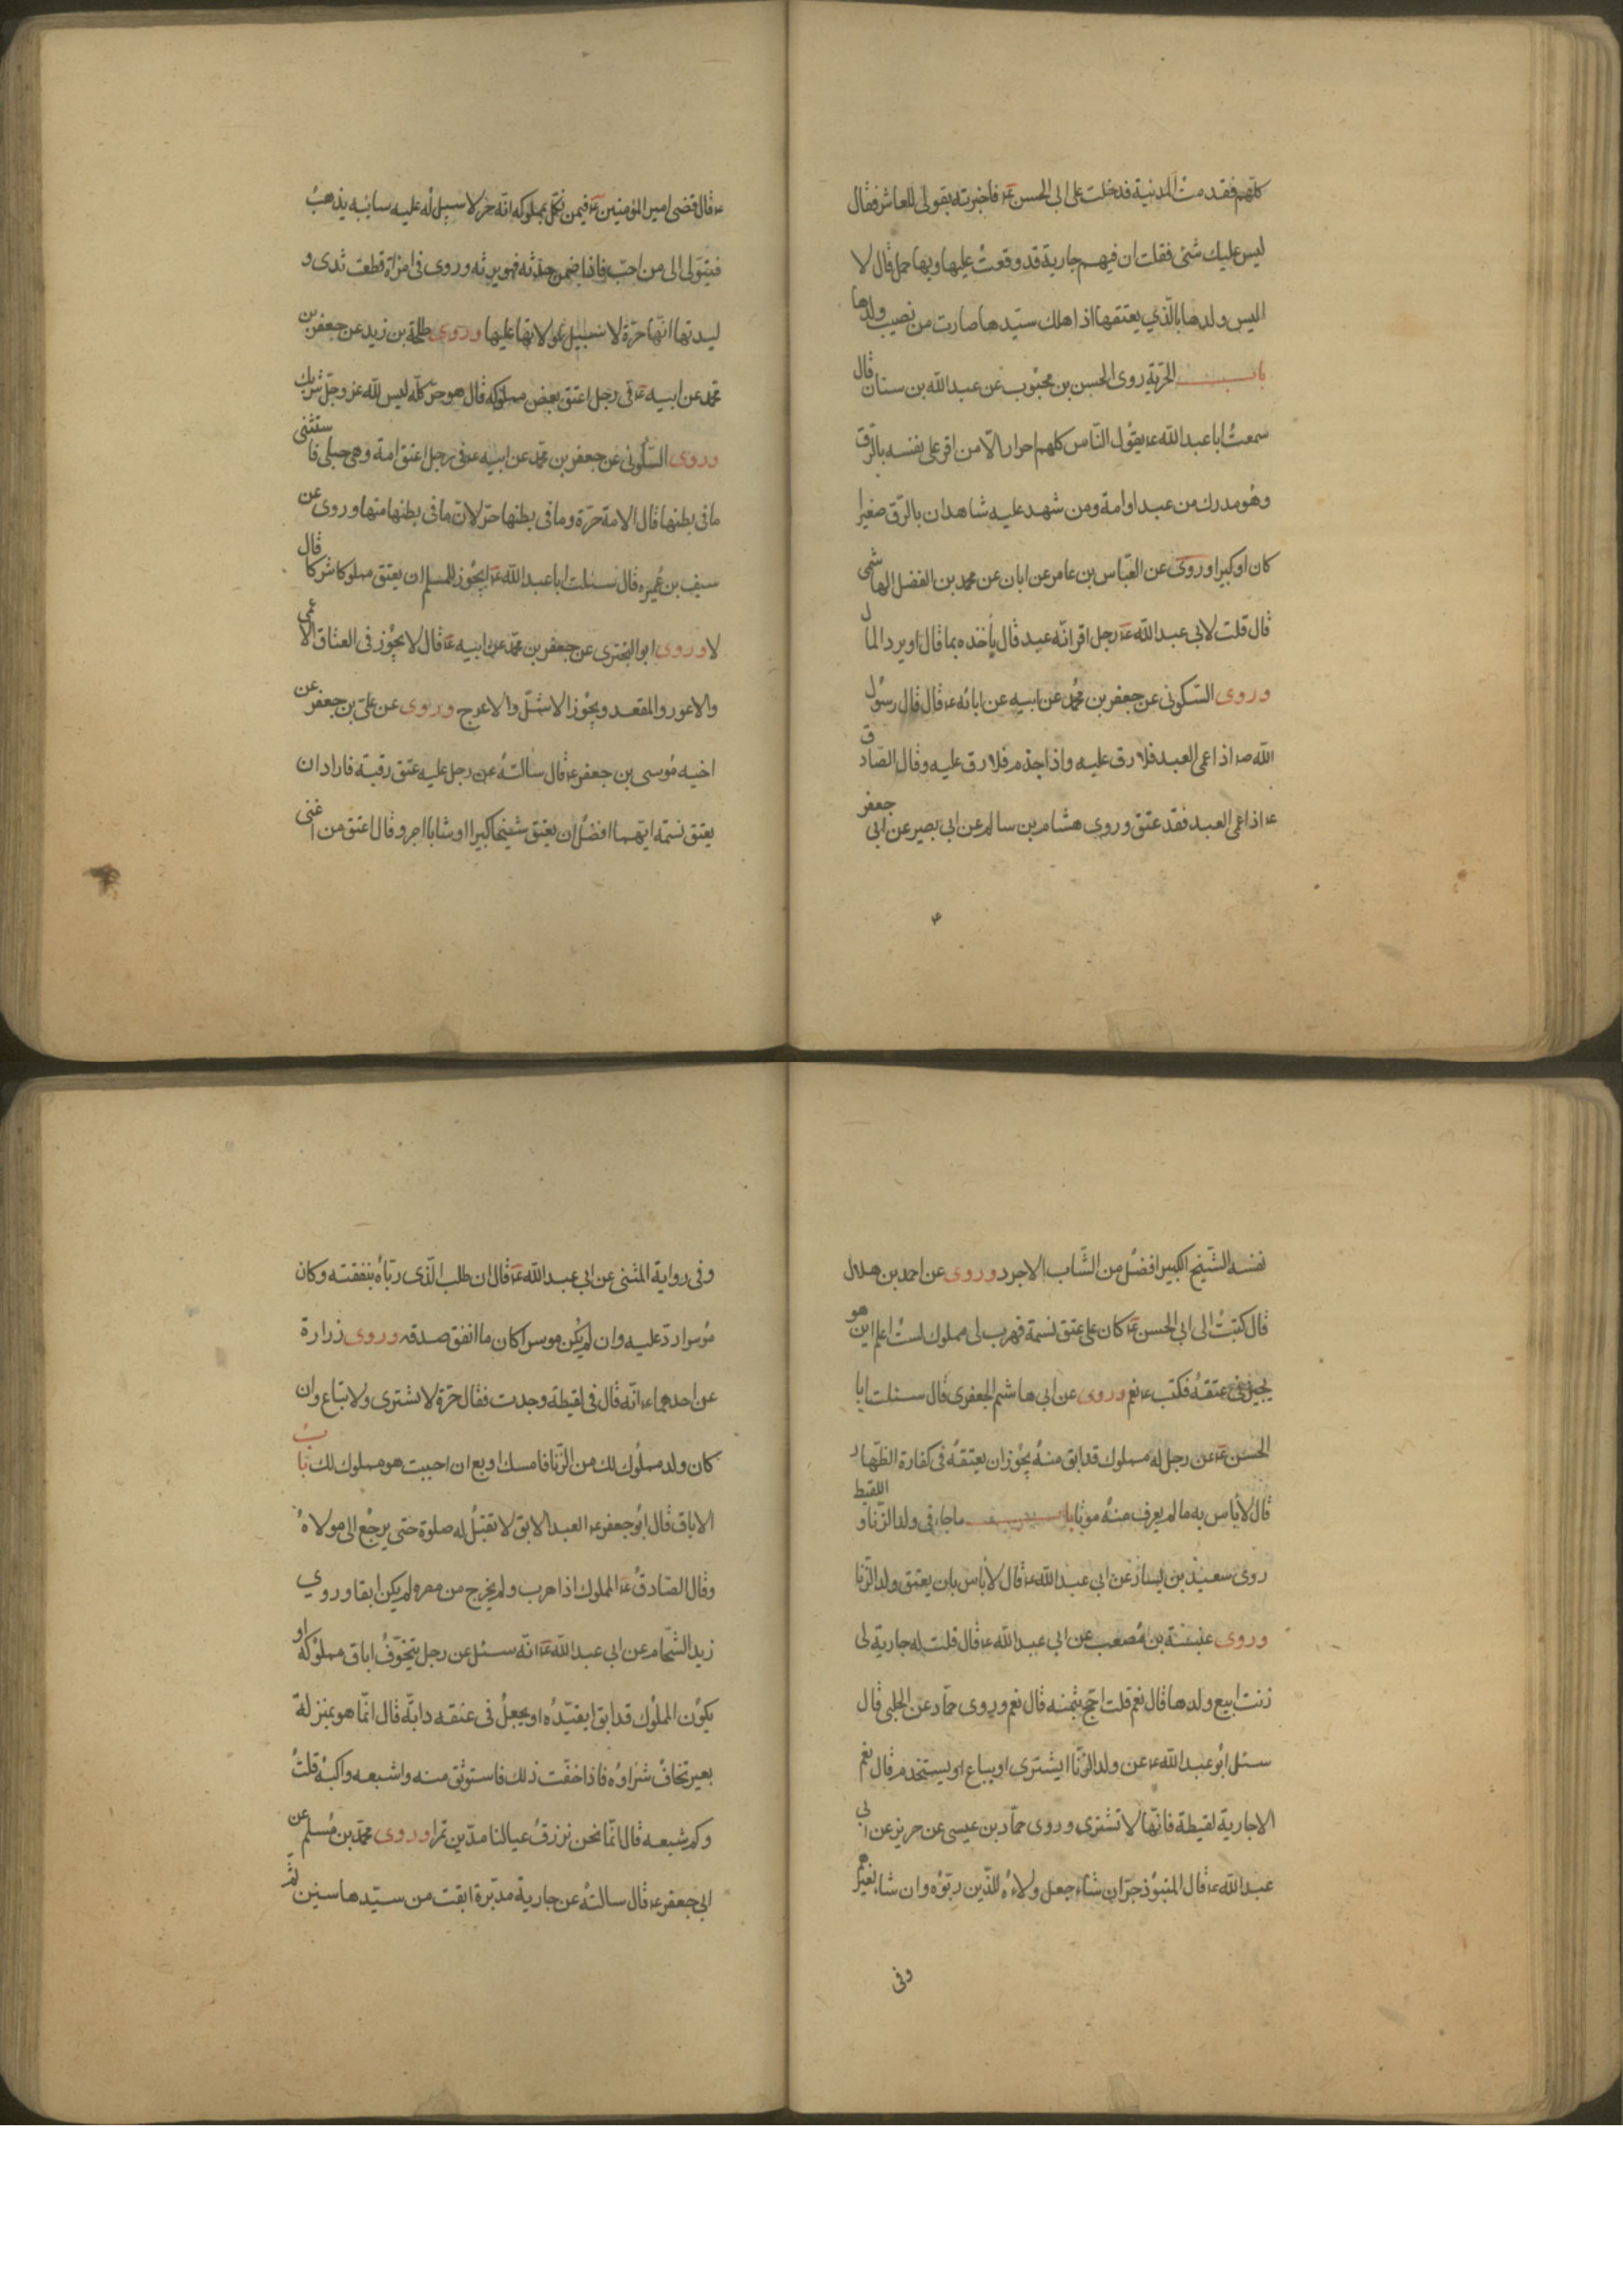 كلهم فقدمت المدينة فدخلت على ابى الحسن ع فاخبرته بقولى للعاشر فقال
ليس عليك شئ فقلت ان فيهم جارية قد وقعت عليها وبها حمل قال لا
اليس ولدها بالذي يعتقها اذا هلك سيدها صارت من نصيب ولدها
باب الحرية روى الحسن بن محبوب عن عبد الله بن سنان قال
سمعت ابا عبد الله ع يقول الناس كلهم احرار الا من اقر على نفسه بالرق
وهو مدرك من عبد او امة ومن شهد عليه شاهدان بالرق صغيرا
كان او كبيرا وروى عن العباس بن عامر عن ابان عن محمد بن الفضل الهاشمى
قال قلت لابى عبد الله ع رجل اقر انه عبد قال يأخذه بما قال او يرد المال
وروى السكونى عن جعفر بن محمد عن ابيه عن ابائه ع قال قال رسول
الله ص اذا عمى العبد فلا رق عليه واذا جذم فلا رق عليه وقال الصادق
ع اذا عمى العبد فقد عتق وروى هشام بن سالم عن ابى بصير عن ابى جعفر
ع قال قضى امير المؤمنين ع فيمن نكل بمملوكه انه حر لا سبيل له عليه سائبه يذهب
فيتولى الى من احب فاذا ضمن حدثه فهو يرثه وروى فى امراة قطعت ثدى و
ليدتها انها حرة لا سبيل لمولاتها عليها وروى طلحة بن زيد عن جعفر بن
محمد عن ابيه ع فى رجل اعتق بعض مملوكه قال هو حر كله ليس لله عز وجل شريك
وروى السكونى عن جعفر بن محمد عن ابيه ع فى رجل اعتق امة وهى حبلى فاستثنى
ما فى بطنها قال الامة حرة وما فى بطنها حر لان ما فى بطنها منها وروى عن
سيف بن عميره قال سئلت ابا عبد الله ع ايجوز للمسلم ان يعتق مملوكا شركا قال
لا وروى ابو البخترى عن جعفر بن محمد عن ابيه ع قال لا يجوز فى العتاق الاعمى
والاعور والمقعد ويجوز الاشل والاعرج وروى عن على بن جعفر عن
اخيه موسى بن جعفر ع قال سالته عن رجل عليه عتق رقبة فاراد ان
يعتق نسمه ايهما افضل ان يعتق شيخا كبيرا او شابا اجرد قال اعتق من اغنى
نفسه الشيخ الكبير افضل من الشاب الاجرد وروى عن احمد بن هلال
قال كتبت الى ابى الحسن ع كان على عتق نسمة فهرب لى مملوك لست اعلم اين هو
يجزى عتقه فكتب ع نعم وروى عن ابى هاشم الجعفرى قال سئلت ابا
الحسن ع عن رجل له مملوك قد ابق منه يجوز ان يعتقه فى كفارة الظهار
قال لا باس به ما لم يعرف منه موتا باب ما جاء فى ولد الزنا و اللقيط
روى سعيد بن يسار عن ابى عبد الله ع قال لا باس بان يعتق ولد الزنا
وروى عنبسة بن مصعب عن ابى عبد الله ع قال قلت له جارية لى
زنت ابيع ولدها قال نعم قلت احج بثمنه قال نعم وروى حماد عن الحلبى قال
سئل ابو عبد الله ع عن ولد الزنا ايشترى او يباع او يستخدم قال نعم
الا جارية لقيطة فانها لا تشترى وروى حماد بن عيسى عن حريز عن ابى
عبد الله ع قال المنبوذ حر ان شاء جعل ولاءه للذين ربوه وان شا لغيرهم
وفى
وفى رواية المثنى عن ابى عبد الله ع قال ان طلب الذى رباه بنفقته وكان
موسرا رد عليه وان لم يكن موسرا كان ما انفق صدقه وروى زرارة
عن احدهما ع انه قال فى لقيطة وجدت فقال حرة لا تشترى ولا تباع وان
كان ولد مملوك لك من الزنا فامسك او بع ان احببت هو مملوك لك باب
الاباق قال ابو جعفر ع العبد الابق لا تقبل له صلوة حتى يرجع الى مولاه
وقال الصادق ع المملوك اذا هرب ولم يخرج من مصره لم يكن ابقا وروي
زيد الشحام عن ابى عبد الله ع انه سئل عن رجل يتخوف اباق مملوكه او
يكون المملوك قد ابق ايقيده او يجعل فى عنقه دابة قال انما هو بمنزلة
بعير تخاف شراوه فاذا خفت ذلك فاستوثق منه واشبعه واكسه قلت
وكم شبعه قال انما نحن نرزق عيالنا مدين تمرا وروى محمد بن مسلم عن
ابى جعفر ع قال سالته عن جارية مدبرة ابقت من سيدها سنين ثم